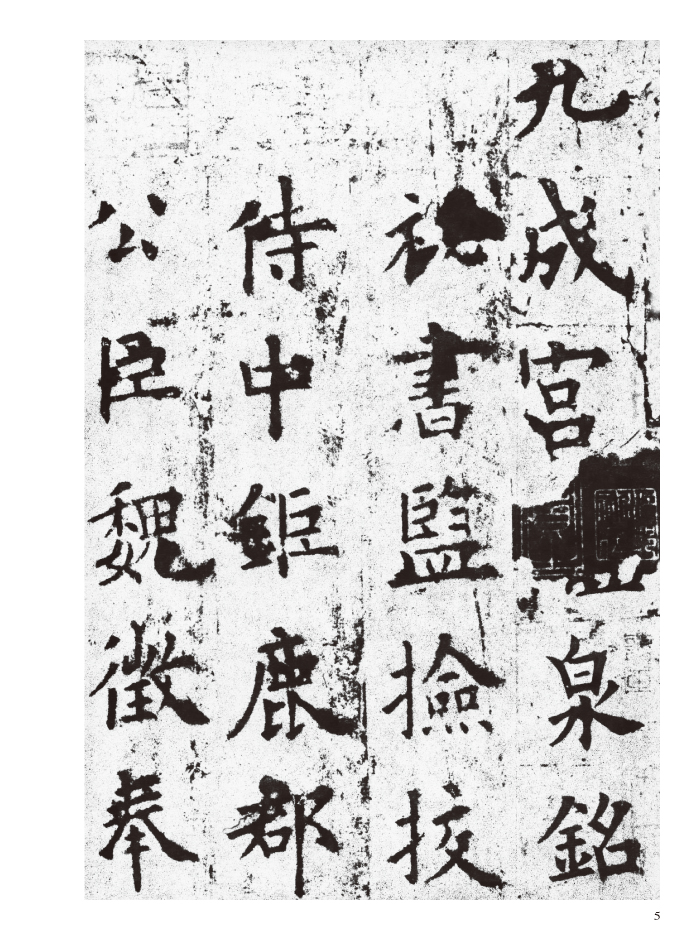 九成宮泉銘
祕書監撿挍
侍中鉅鹿郡
公臣魏徵奉
5